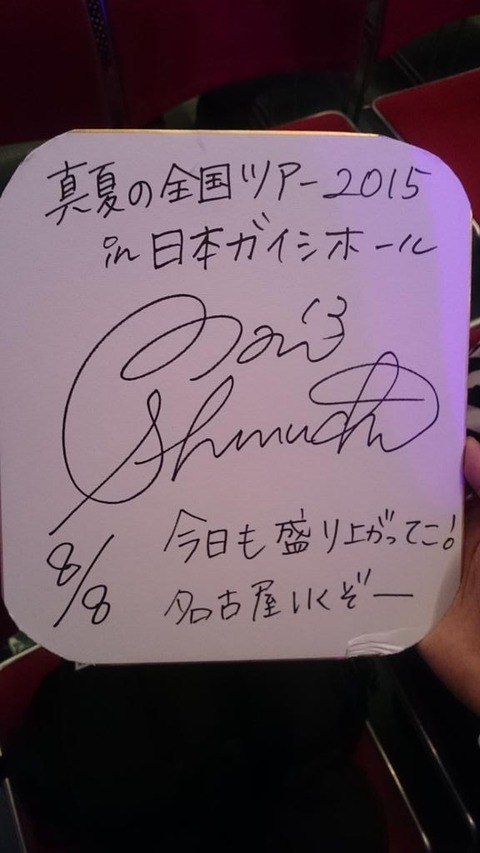 真夏の全国ツアー2015
in 日本ガイシホール
8/8
今日も盛り上がってこ!
名古屋いくぞー